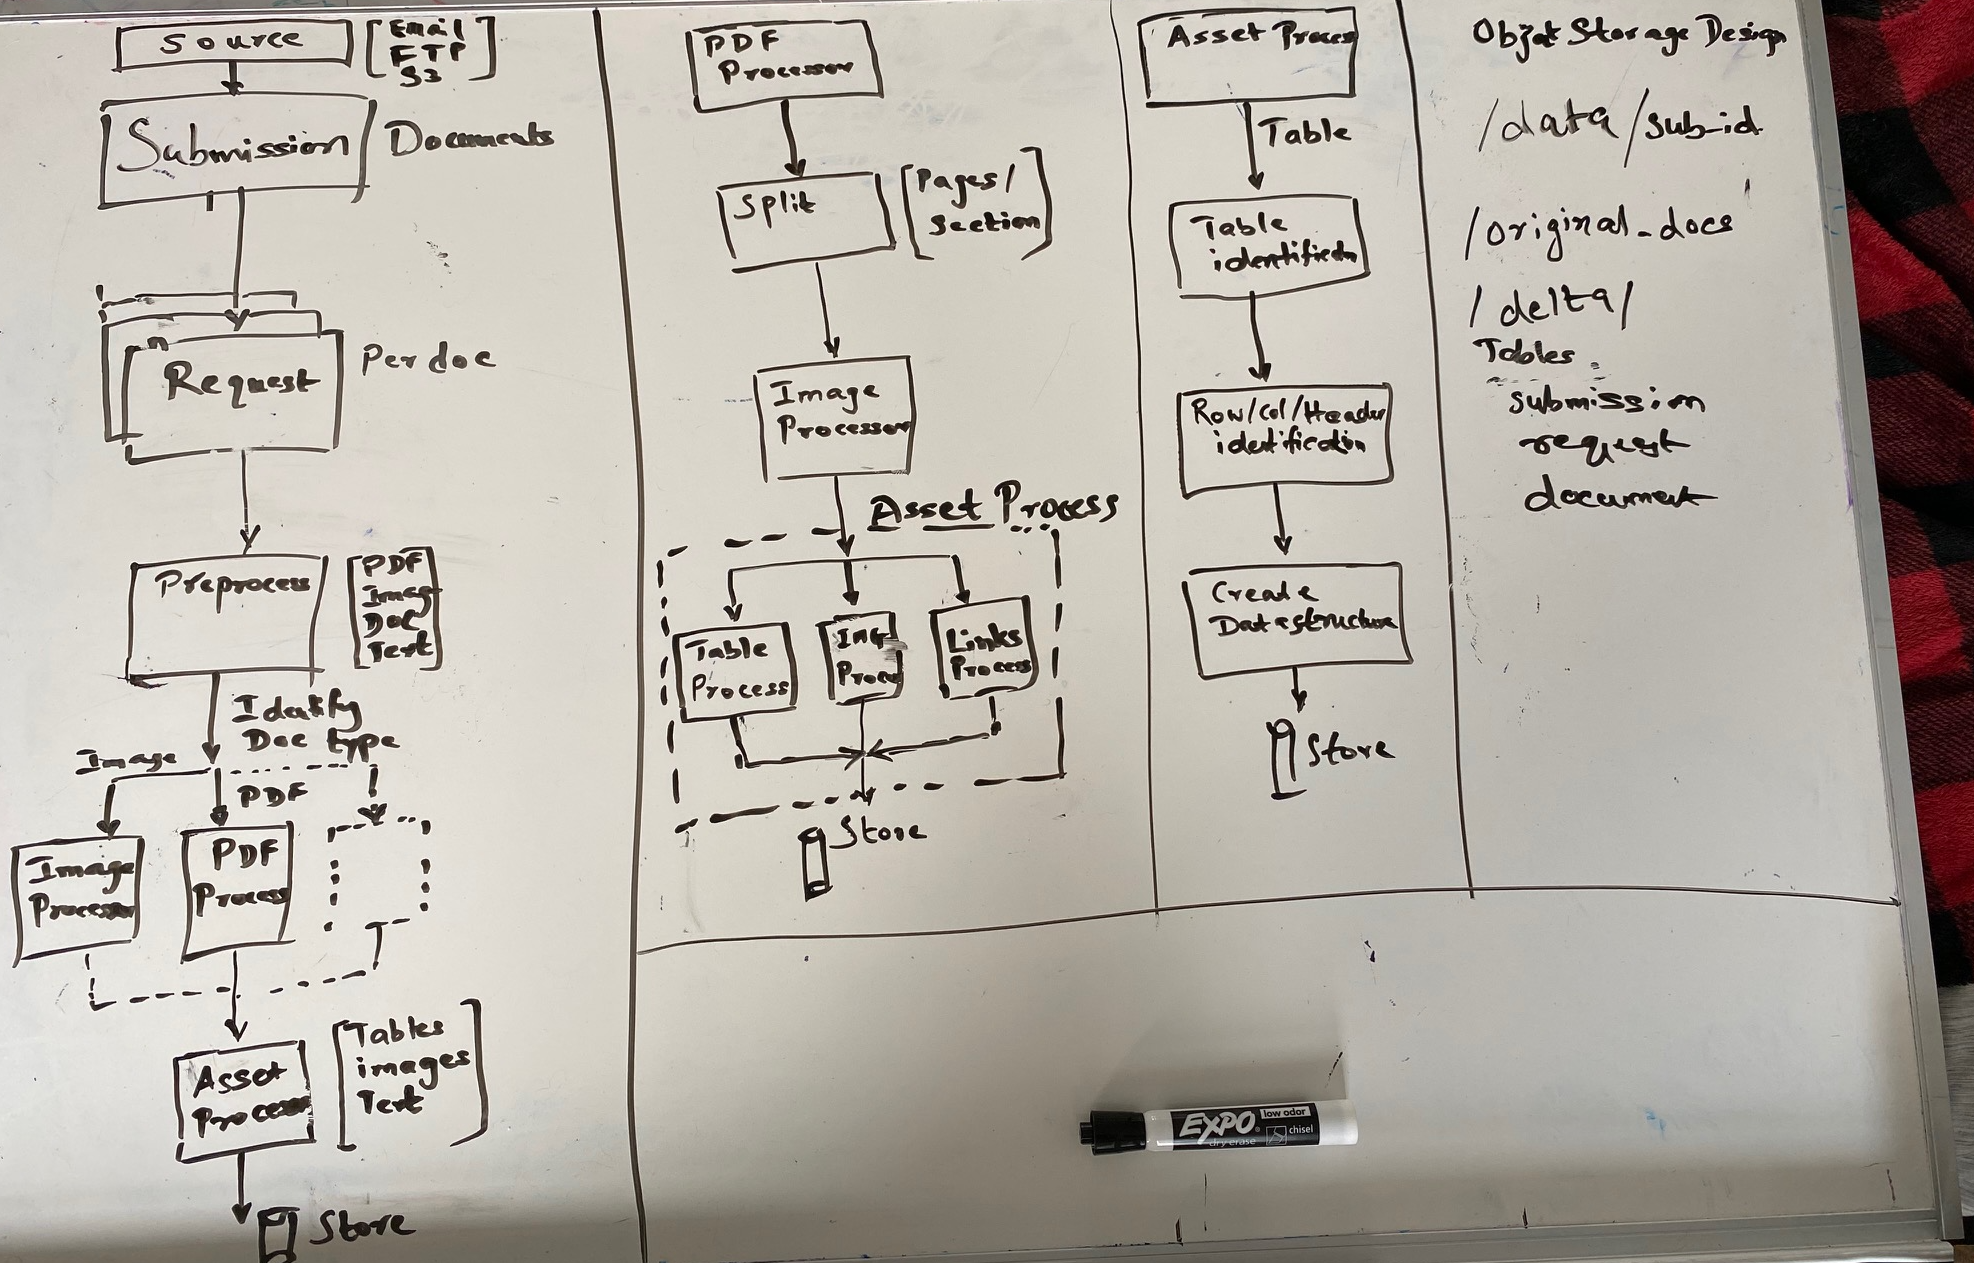 Source
Email
FTP
S3
Submission
Documents
Request
Per doc
Preprocess
PDF
Image
Doc
Text
Identify
Doc type
Image
PDF
Image
Processor
PDF
Process
Asset
Processor
Tables
images
Text
Store
PDF
Processor
Split
Pages/
Section
Image
Processor
Asset Process
Table
Process
Img
Proces
Links
Process
Store
Asset Process
Table
Table
identification
Row/Col/Header
identification
Create
Datastructure
Store
Object Storage Design
/data/sub-id
/original-docs
/delta/
Tables
submission
request
document
EXPO
low odor
dry erase
chisel